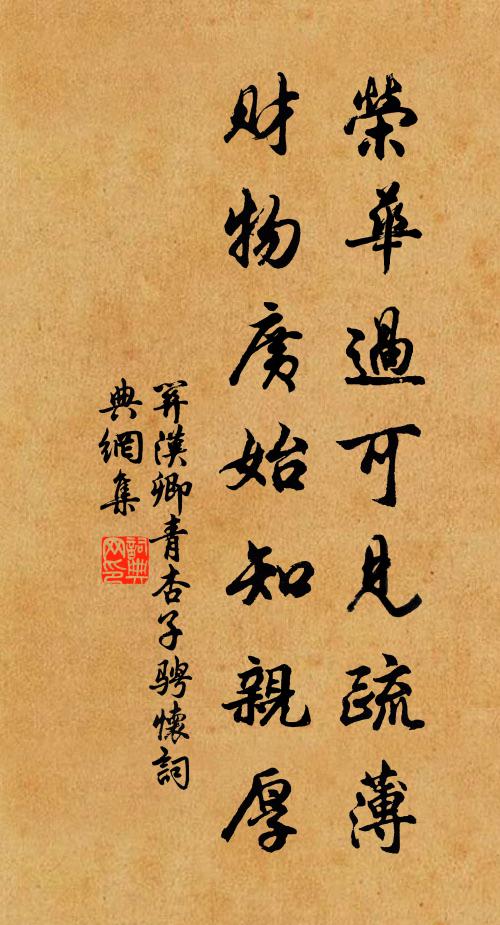 榮華過可見疏薄
财物廣始知親厚
關漢卿青杏子骋懷詞
典網集
詞典
网印